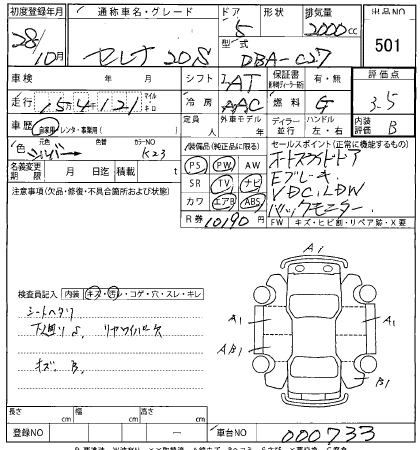 初度登録年月 通称車名・グレード ドア 形状 排気量 出品NO
28/10月 セレナ 20S 5 2000cc 501
型式 DBA-C27
車検 年 月 シフト IAT 保証書 有・無 評価点
走行 15 4 121 マイル キロ 冷房 AAC 燃料 G 3.5
車歴 自家用 レンタ・事業用 定員 人 外車モデル 年 ディーラー 並行 ハンドル 左・右 内装 B
色 元色 シルバー 色替 カラーNO K23
装備品(純正品に限る) セールスポイント(正常に機能するもの)
名義変更期限 月 日迄 積載 t
PS PW AW オートスライドドア
SR TV ナビ Eブレーキ
カワ エアB ABS VDC, LDW
R券 10190円 バックモニター
注意事項(欠品・修復・不具合箇所および状態)
FW キズ・ヒビ割・リペア跡・X要
検査員記入 内装 キズ・汚レ・コゲ・穴・スレ・キレ
シートヘタリ
下廻りS リヤワイパー欠
キズ B
A1
A1 A1
AB1
B1
長さ cm 幅 cm 高さ cm
登録NO 車台NO 000733